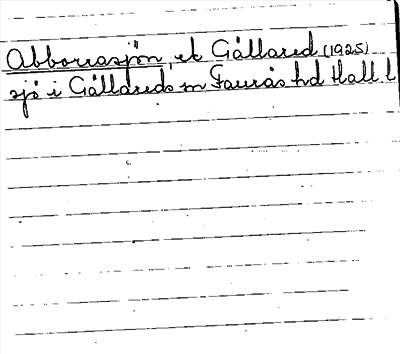 Abborrasjön, ek Gällared (1925)
sjö i Gällareds sn Faurås hd Hall. l